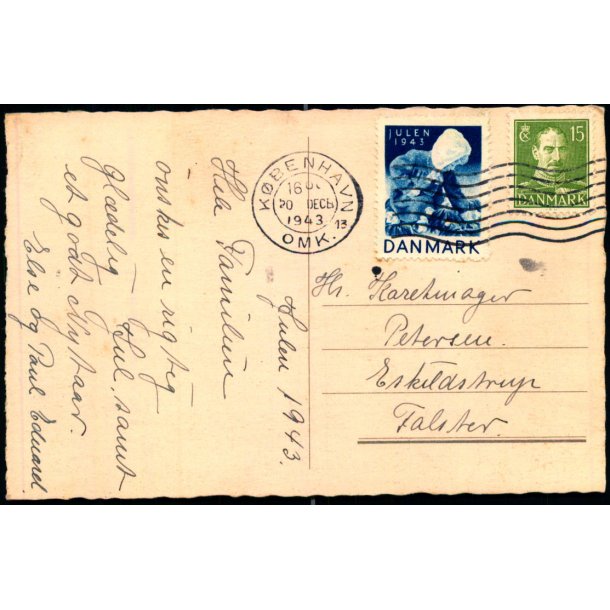 Hulen 1943.
Hele Familien
ønskes en rigtig
glædelig Hul samt
et godt Nytaar.
Else og Paul Edvard
KØBENHAVN
16
20 DECB
1943
13
OMK.
JULEN
1943
DANMARK
15
DANMARK
Hr. Karetmager
Petersen.
Eskildstrup
Falster.